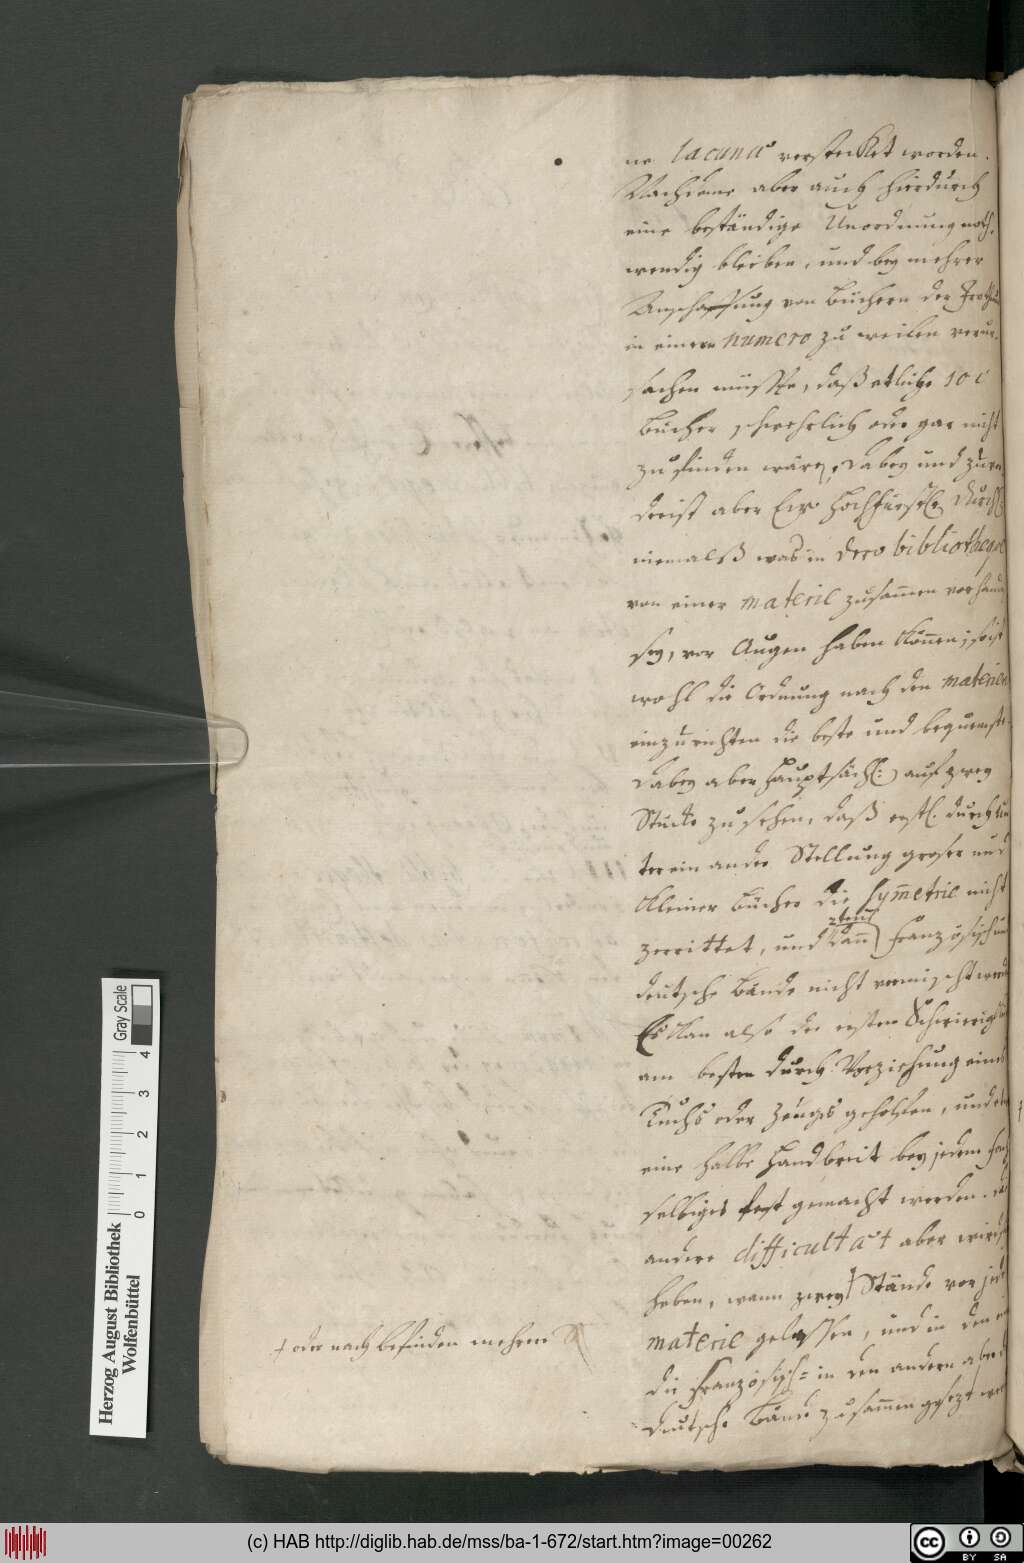 ne lacuna verstecket worden.
Nachdeme aber auch hierdurch
eine beständige Unordnung noth-
wendig bleiben, und bey mehrer
Anschaffung von Büchern der
in einem numero zu weilen verur-
sachen müsste, daß etliche 100
Bücher schwehrlich oder gar nicht
zu finden wären, dabey und zuvo-
derist aber Ew. Hochfürstl. Durchl.
niemalß was in dero bibliotheque
von einer materie zusam̄en vorhanden
sey, vor Augen haben kön̄en; so ist
wohl die Ordnung nach den materien
einzurichten die beste und bequemste.
Dabey aber hauptsächl: auf zwey
Stücke zu sehen, daß erstl. durch un-
ter ein ander Stellung großer und
kleiner Bücher die Sym̄etrie nicht
2tens
zerrittet, und dan̄ Französisch und
deutsche Bände nicht vermischt werden
Es kan also der ersten Schwierigkeit
am besten durch Vorziehung eines
Tuchs oder Zeugs geholfen, und etwa
eine halbe Handbreit bey jedem Fach
selbiges fest gemacht werden. die
andere difficultaet aber wird
heben, wann zwey Stände vor jede
+ oder nach befinden mehrere
materie gelassen, und in den einen
die Französisch= in den andern aber die
deutsche Bände zusam̄en gesezt werden
Herzog August Bibliothek
Wolfenbüttel
0 1 2 3 4
Gray Scale
(c) HAB http://diglib.hab.de/mss/ba-1-672/start.htm?image=00262
cc BY SA